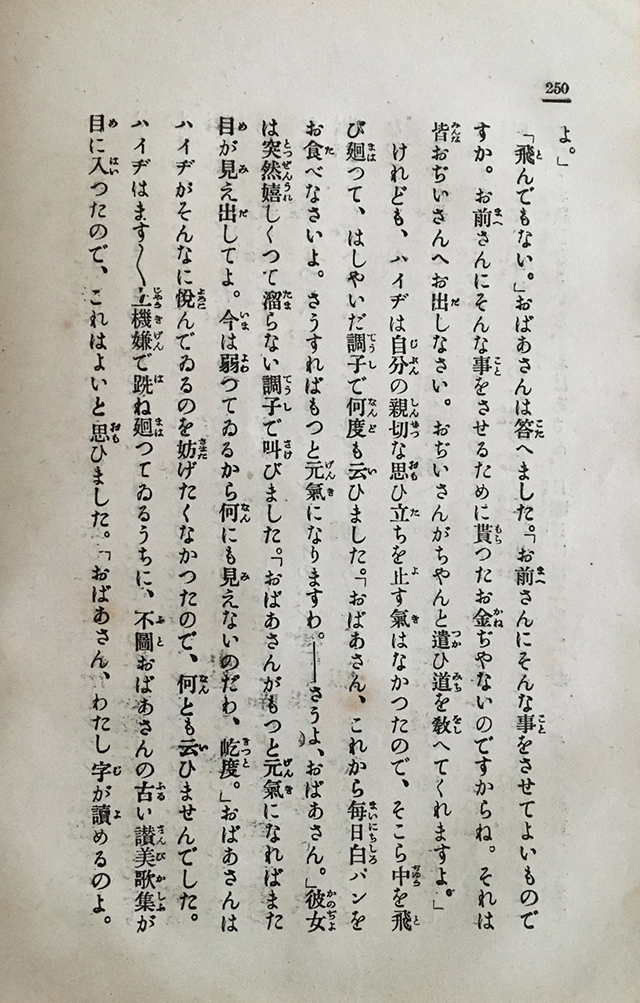 250
よ。」
「飛んでもない。」おばあさんは答へました。「お前さんにそんな事をさせてよいもので
すか。お前さんにそんな事をさせるために貰つたお金ぢやないのですからね。それは
皆おぢいさんへお出しなさい。おぢいさんがちやんと遣ひ道を敎へてくれますよ。」
けれども、ハイヂは自分の親切な思ひ立ちを止す氣はなかつたので、そこら中を飛
び廻つて、はしやいだ調子で何度も云ひました。「おばあさん、これから毎日白パンを
お食べなさいよ。さうすればもつと元氣になりますわ。――さうよ、おばあさん。」彼女
は突然嬉しくつて溜らない調子で叫びました。「おばあさんがもつと元氣になればまた
目が見え出してよ。今は弱つてゐるから何にも見えないのだわ、屹度。」おばあさんは
ハイヂがそんなに悅んでゐるのを妨げたくなかつたので、何とも云ひませんでした。
ハイヂはます〱上機嫌で跳ね廻つてゐるうちに、不圖おばあさんの古い讃美歌集が
目に入つたので、これはよいと思ひました。「おばあさん、わたし字が讀めるのよ。